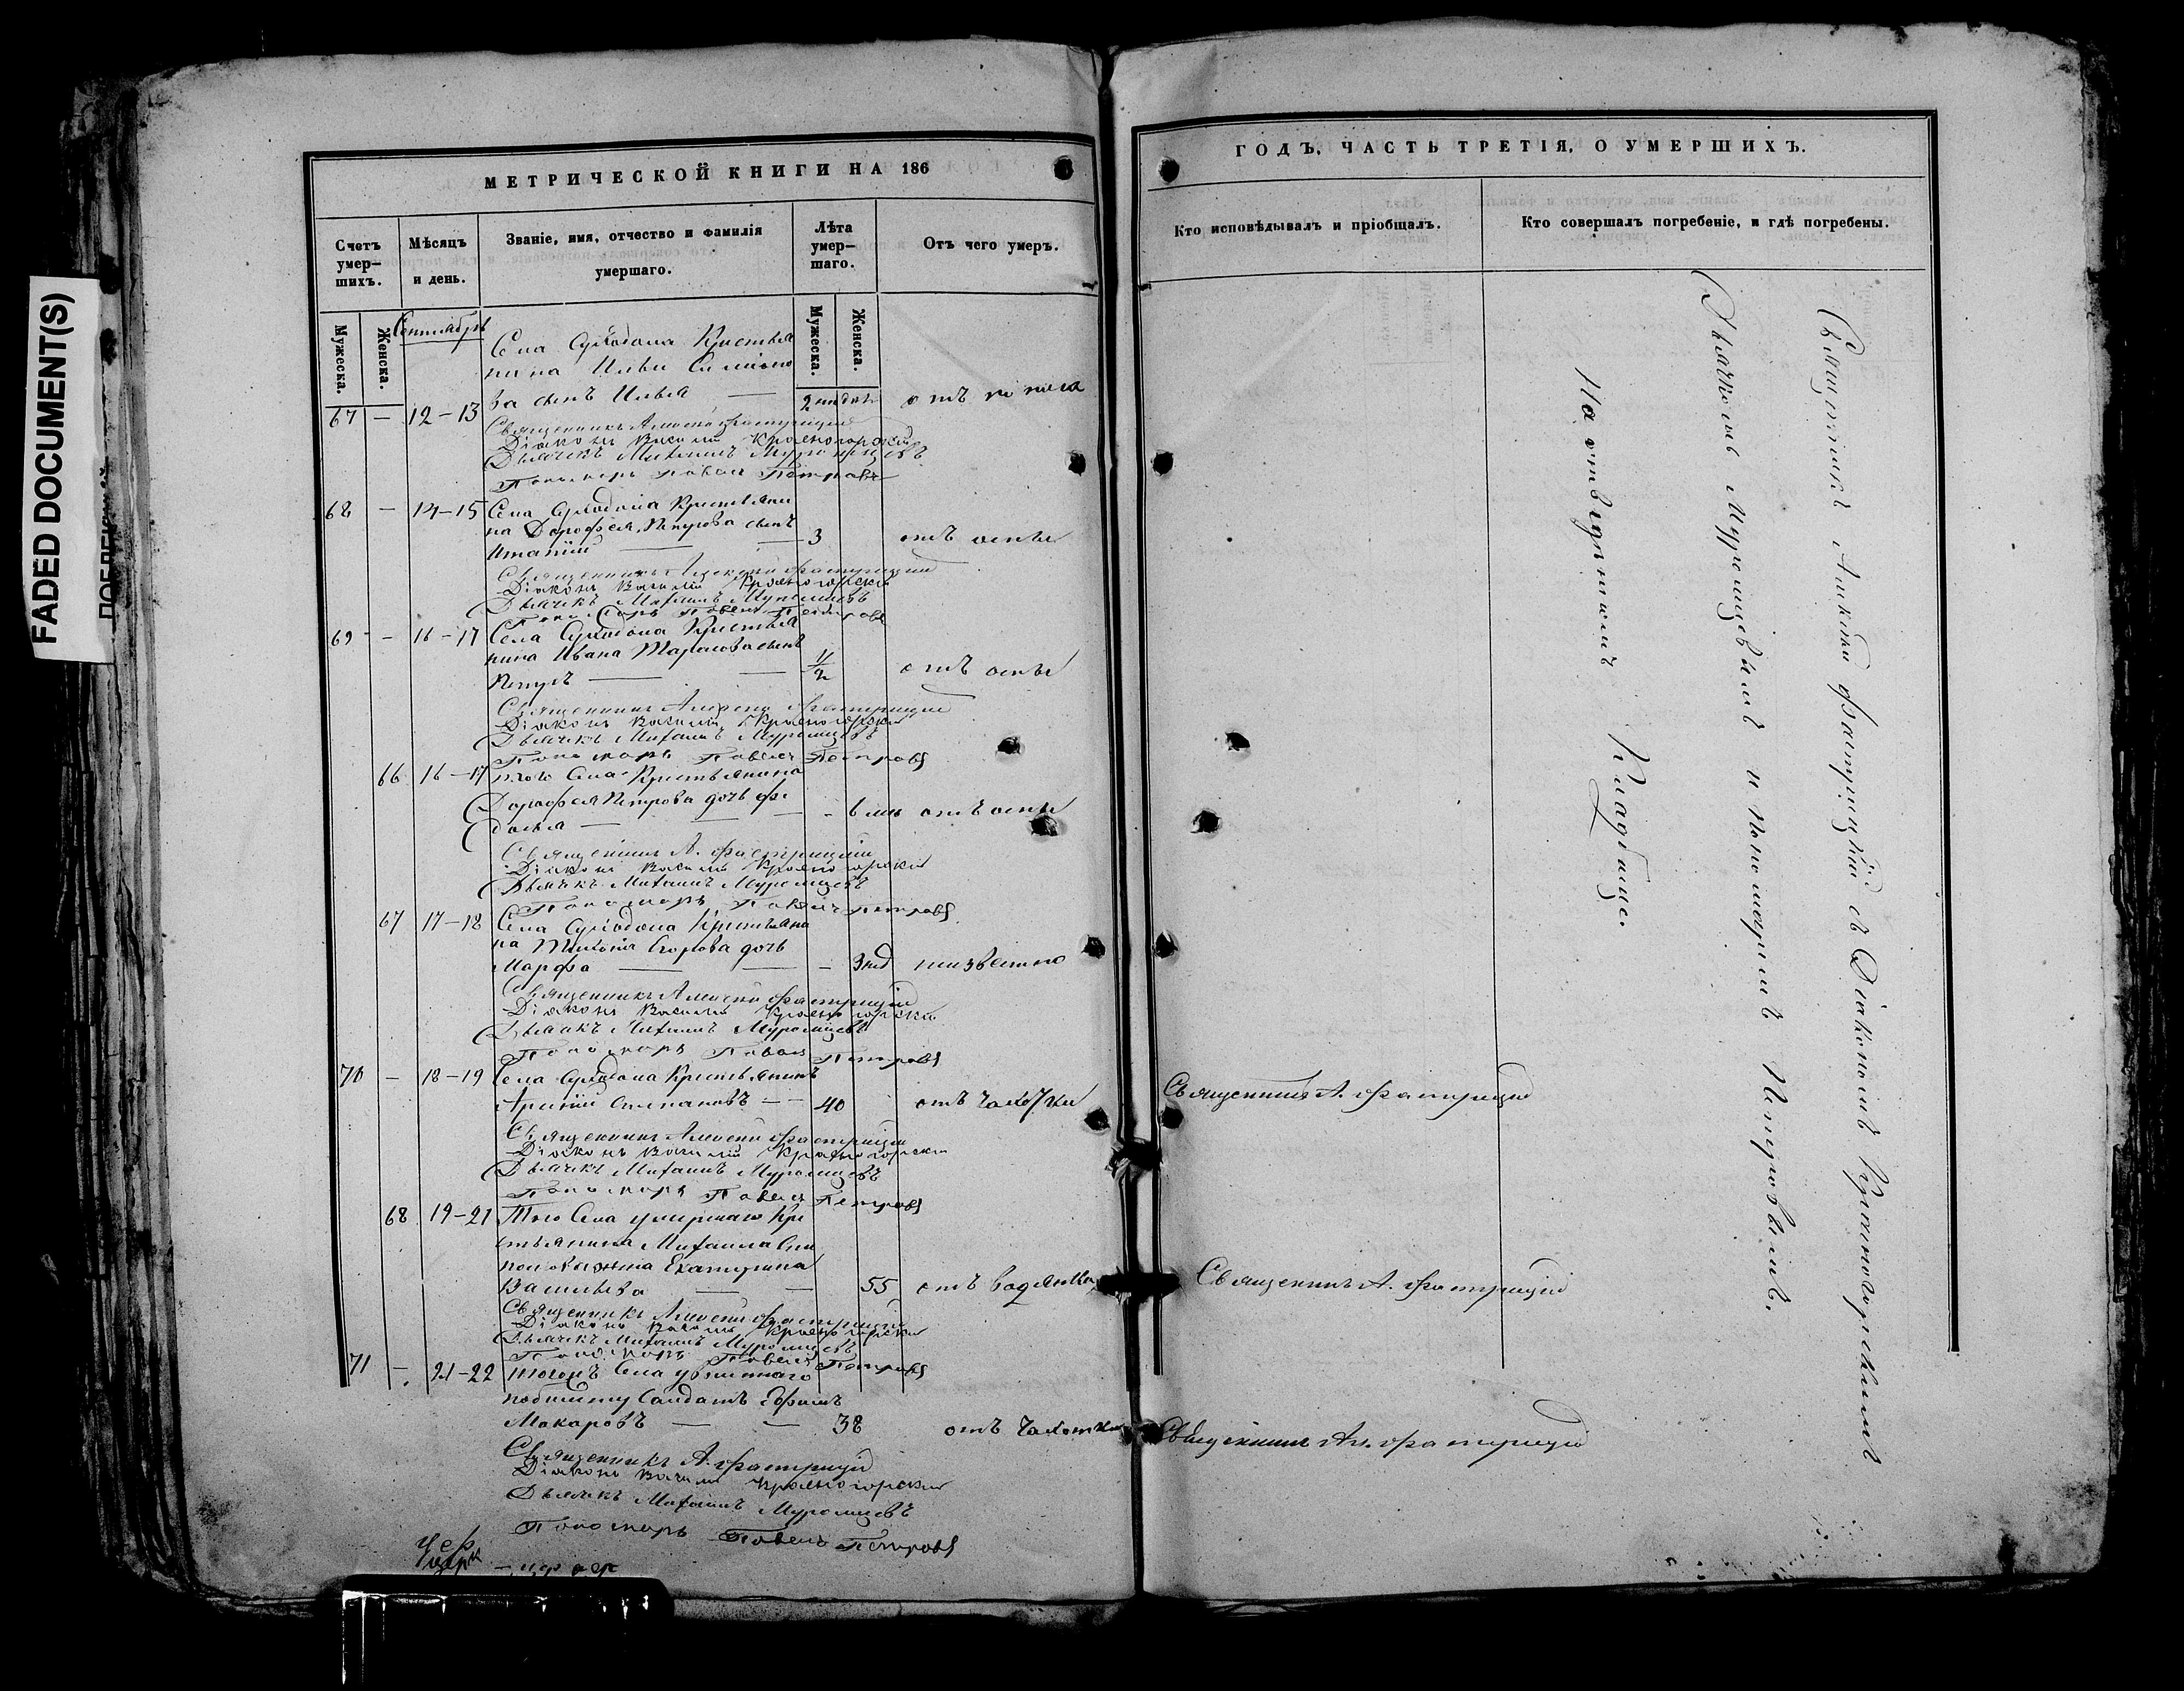 FADED DOCUMENT(S)
МЕТРИЧЕСКОЙ КНИГИ НА 186
Счетъ умер-
шихъ.
Мѣсяцъ
и день.
Званіе, имя, отчество и фамилія
умершаго.
Лѣта
умер-
шаго.
Отъ чего умеръ.
Мужеска.
Женска.
Сентябрь
Мужеска.
Женска.
Села Суходола Крестья
нина Ильи
ва сынъ Илья
67 — 12-13 2 недѣль отъ
Священникъ Алексѣй Фатрицкій
Діаконъ Василій Красногорскій
Дьячекъ Михаилъ Муромцевъ
Пономарь Павелъ Петровъ
68 — 14-15 Села Суходола Крестьяни
на Дорофея Петрова сынъ
3 отъ оспы
Священникъ Алексѣй Фатрицкій
Діаконъ Василій Красногорскій
Дьячекъ Михаилъ Муромцевъ
Пономарь Павелъ Петровъ
69 — 16-17 Села Суходола Крестья
нина Ивана Тарасова сынъ
Петръ 1/2 отъ оспы
Священникъ Алексѣй Фатрицкій
Діаконъ Василій Красногорскій
Дьячекъ Михаилъ Муромцевъ
Пономарь Павелъ Петровъ
66 16-17 того Села Крестьянина
Дорофея Петрова дочь Фе
досья — 6 мѣс отъ оспы
Священникъ А. Фатрицкій
Діаконъ Василій Красногорскій
Дьячекъ Михаилъ Муромцевъ
Пономарь Павелъ Петровъ
67 17-18 Села Суходола Крестьяни
на Егорова дочь
Марфа — 3 нед неизвестно
Священникъ Алексѣй Фатрицкій
Діаконъ Василій Красногорскій
Дьячекъ Михаилъ Муромцевъ
Пономарь Павелъ Петровъ
70 — 18-19 Села Суходола Крестьянинъ
Степановъ — 40 отъ чахотки
Священникъ Алексѣй Фатрицкій
Діаконъ Василій Красногорскій
Дьячекъ Михаилъ Муромцевъ
Пономарь Павелъ Петровъ
68 19-21 Того Села умершаго Кре
стьянина Михаила
жена Екатерина
Васильева — 55 отъ водянки
Священникъ Алексѣй Фатрицкій
Діаконъ Василій Красногорскій
Дьячекъ Михаилъ Муромцевъ
Пономарь Павелъ Петровъ
71 — 21-22 тогожъ Села
побилету Солдатъ Ефимъ
Макаровъ — 38 отъ чахотки
Священникъ А. Фатрицкій
Діаконъ Василій Красногорскій
Дьячекъ Михаилъ Муромцевъ
Пономарь Павелъ Петровъ
ГОДЪ, ЧАСТЬ ТРЕТІЯ, О УМЕРШИХЪ.
Кто исповѣдывалъ и пріобщалъ.
Кто совершалъ погребеніе, и гдѣ погребены.
Священникъ А. Фатрицкій
Священникъ А. Фатрицкій
Священникъ Ал. Фатрицкій
Священникъ Алексѣй Фатрицкій съ Діакономъ Красногорскимъ
Дьячкомъ Муромцевымъ и Пономаремъ Петровымъ.
На отведенномъ Кладбище.